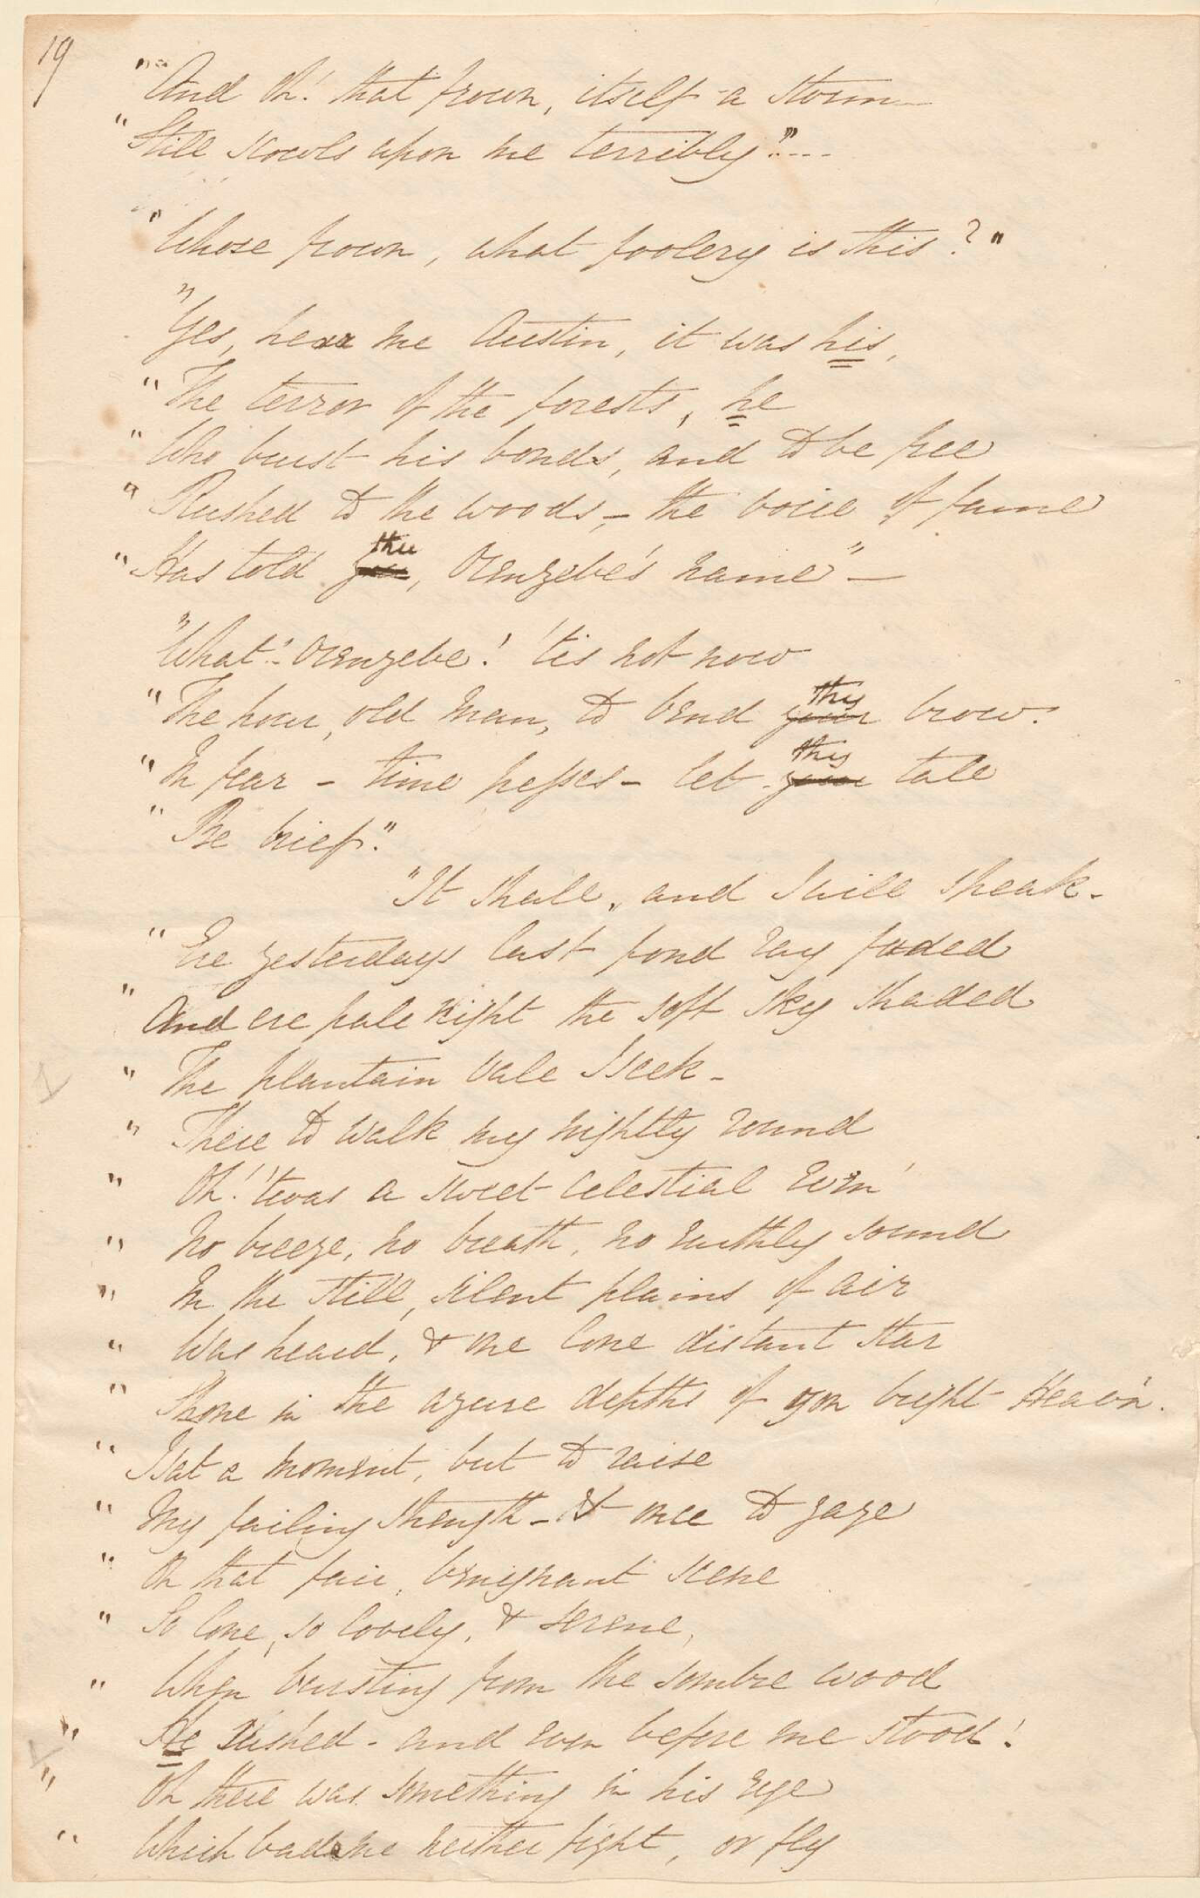 19
"And Oh! that frown, itself a storm—
"Still scowls upon me terribly!"....
"Whose frown, what foolery is this?"
"Yes, hear me Austin, it was his,
"The terror of the forests, he
"Who burst his bonds, and to be free
"Rushed to the woods,— the voice of fame
"Has told you thee, Orenzebe's name"—
"What!- Orenzebe! 'tis not now
"The hour, old man, to bend your thy brow.
"In fear - time presses - let your thy tale
"Be brief."
"It shall, and I will speak-
"Ere yesterdays last fond ray faded
"And ere pale Night the soft sky shaded
"The plantain vale I seek-
"There to walk my nightly round
"Oh! 'twas a sweet celestial Even'
"No breeze, no breath, no earthly sound
"In the still, silent plains of air
"Was heard, & one lone distant star
"Shone in the azure depths of yon bright Heav'n.
"I sat a moment, but to raise
"My failing strength - & once to gaze
"On that fair, benignant scene
"So lone, so lovely, & serene,
"When bursting from the sombre wood
"He rushed - and even before me stood!
"Oh there was something in his eye
"Which bade me neither fight, or fly